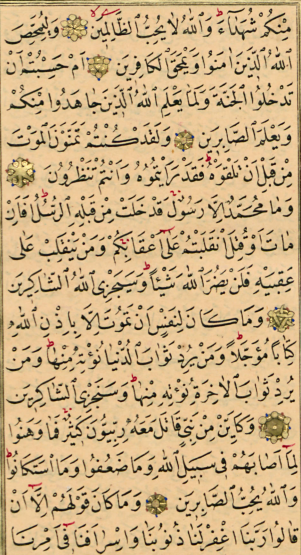 مِنْكُمْ شُهَدَاءَ وَاللّٰهُ لَا يُحِبُّ الظَّالِمِينَ وَلِيُمَحِّصَ
اللّٰهُ الَّذِينَ اٰمَنُوا وَيَمْحَقَ الْكَافِرِينَ اَمْ حَسِبْتُمْ اَنْ
تَدْخُلُوا الْجَنَّةَ وَلَمَّا يَعْلَمِ اللّٰهُ الَّذِينَ جَاهَدُوا مِنْكُمْ
وَيَعْلَمَ الصَّابِرِينَ وَلَقَدْ كُنْتُمْ تَمَنَّوْنَ الْمَوْتَ
مِنْ قَبْلِ اَنْ تَلْقَوْهُ فَقَدْ رَاَيْتُمُوهُ وَاَنْتُمْ تَنْظُرُونَ
وَمَا مُحَمَّدٌ اِلَّا رَسُولٌ قَدْ خَلَتْ مِنْ قَبْلِهِ الرُّسُلُ اَفَاِنْ
مَاتَ اَوْ قُتِلَ انْقَلَبْتُمْ عَلٰى اَعْقَابِكُمْ وَمَنْ يَنْقَلِبْ عَلٰى
عَقِبَيْهِ فَلَنْ يَضُرَّ اللّٰهَ شَيْـًٔا وَسَيَجْزِي اللّٰهُ الشَّاكِرِينَ
وَمَا كَانَ لِنَفْسٍ اَنْ تَمُوتَ اِلَّا بِاِذْنِ اللّٰهِ
كِتَابًا مُؤَجَّلًا وَمَنْ يُرِدْ ثَوَابَ الدُّنْيَا نُؤْتِهِ مِنْهَا وَمَنْ
يُرِدْ ثَوَابَ الْاٰخِرَةِ نُؤْتِهِ مِنْهَا وَسَنَجْزِي الشَّاكِرِينَ
وَكَاَيِّنْ مِنْ نَبِيٍّ قَاتَلَ مَعَهُ رِبِّيُّونَ كَثِيرٌ فَمَا وَهَنُوا
لِمَا اَصَابَهُمْ فِي سَبِيلِ اللّٰهِ وَمَا ضَعُفُوا وَمَا اسْتَكَانُوا
وَاللّٰهُ يُحِبُّ الصَّابِرِينَ وَمَا كَانَ قَوْلَهُمْ اِلَّا اَنْ
قَالُوا رَبَّنَا اغْفِرْ لَنَا ذُنُوبَنَا وَاِسْرَافَنَا فِي اَمْرِنَا